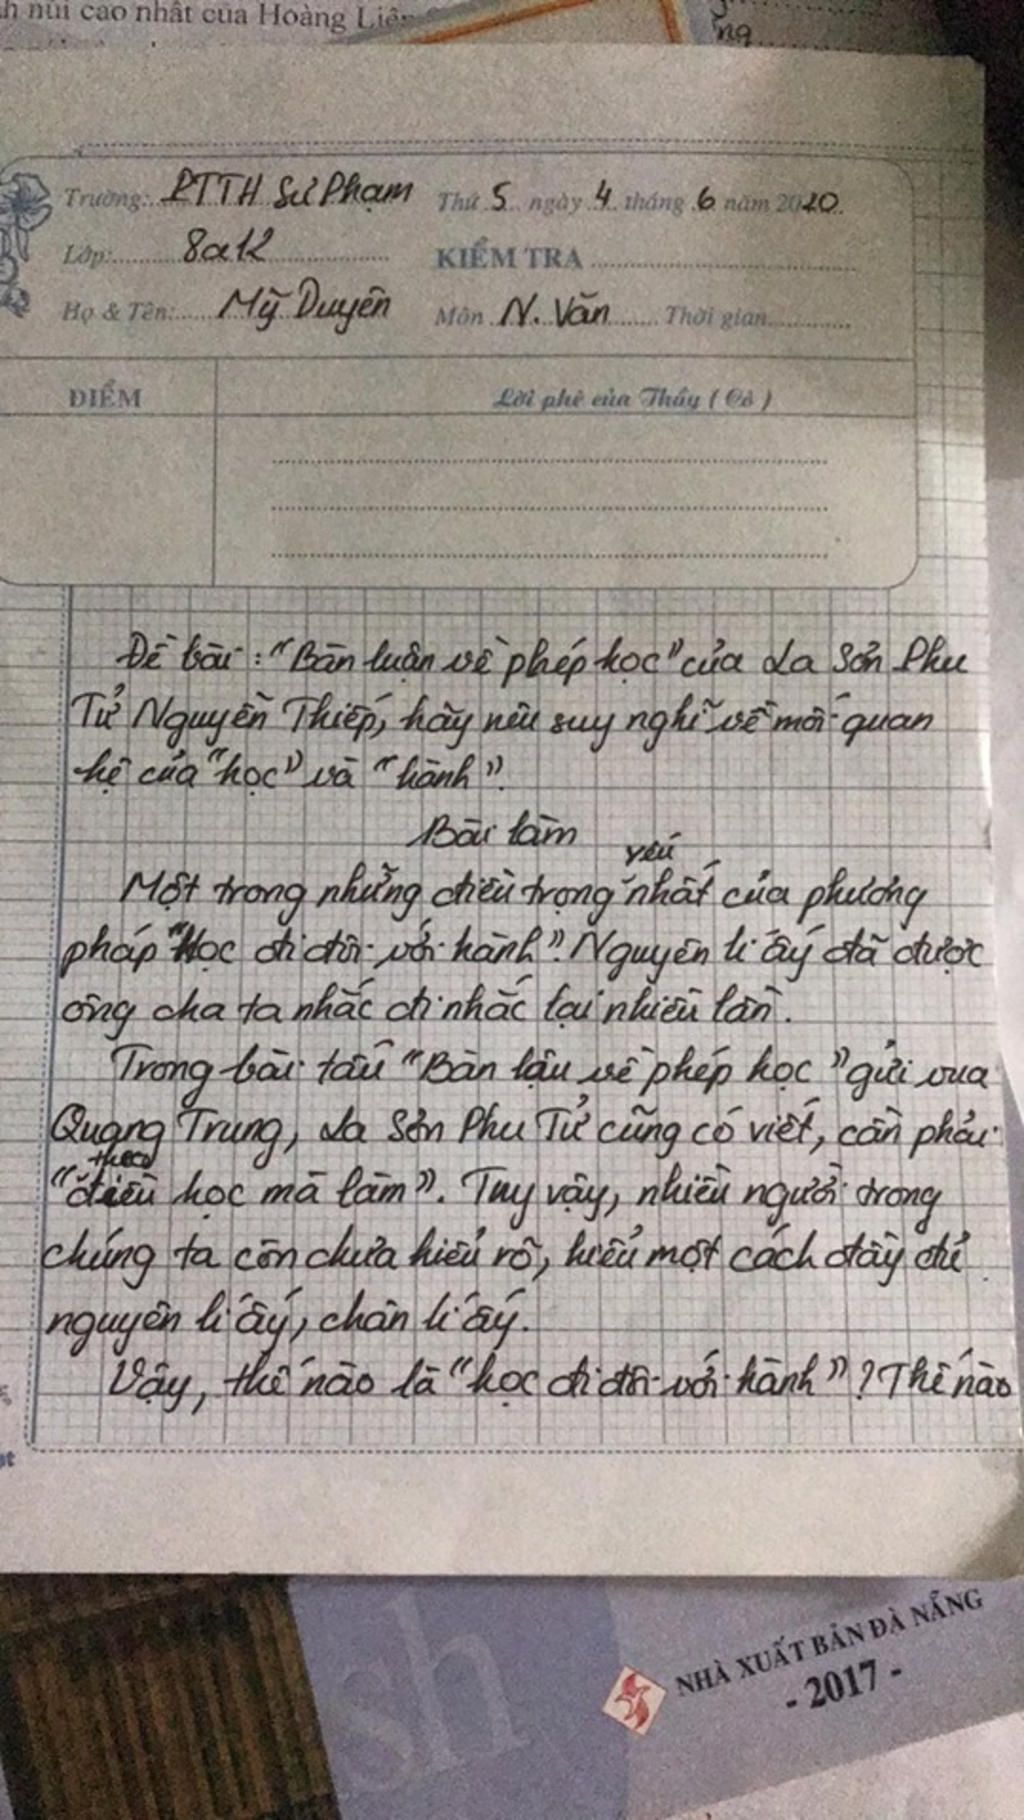 h núi cao nhất của Hoàng Liên
ng
Trường: PTTH Sư Phạm Thứ 5 ngày 4 tháng 6 năm 2020
Lớp: 8a12 KIỂM TRA
Họ & Tên: Mỹ Duyên Môn N. Văn Thời gian
ĐIỂM Lời phê của Thầy ( Cô )
Đề bài: "Bàn luận về phép học" của La Sơn Phu
Tử Nguyễn Thiếp, hãy nêu suy nghĩ về mối quan
hệ của "học" và "hành".
Bài làm
Một trong những điều trọng yếu nhất của phương
pháp "Học đi đôi với hành". Nguyên lí ấy đã được
ông cha ta nhắc đi nhắc lại nhiều lần.
Trong bài tấu "Bàn lậu về phép học" gửi vua
Quang Trung, La Sơn Phu Tử cũng có viết, cần phải
"theo điều học mà làm". Tuy vậy, nhiều người trong
chúng ta còn chưa hiểu rõ, hiểu một cách đầy đủ
nguyên lí ấy, chân lí ấy.
Vậy, thế nào là "học đi đôi với hành"? Thế nào
sh
NHÀ XUẤT BẢN ĐÀ NẴNG
- 2017 -